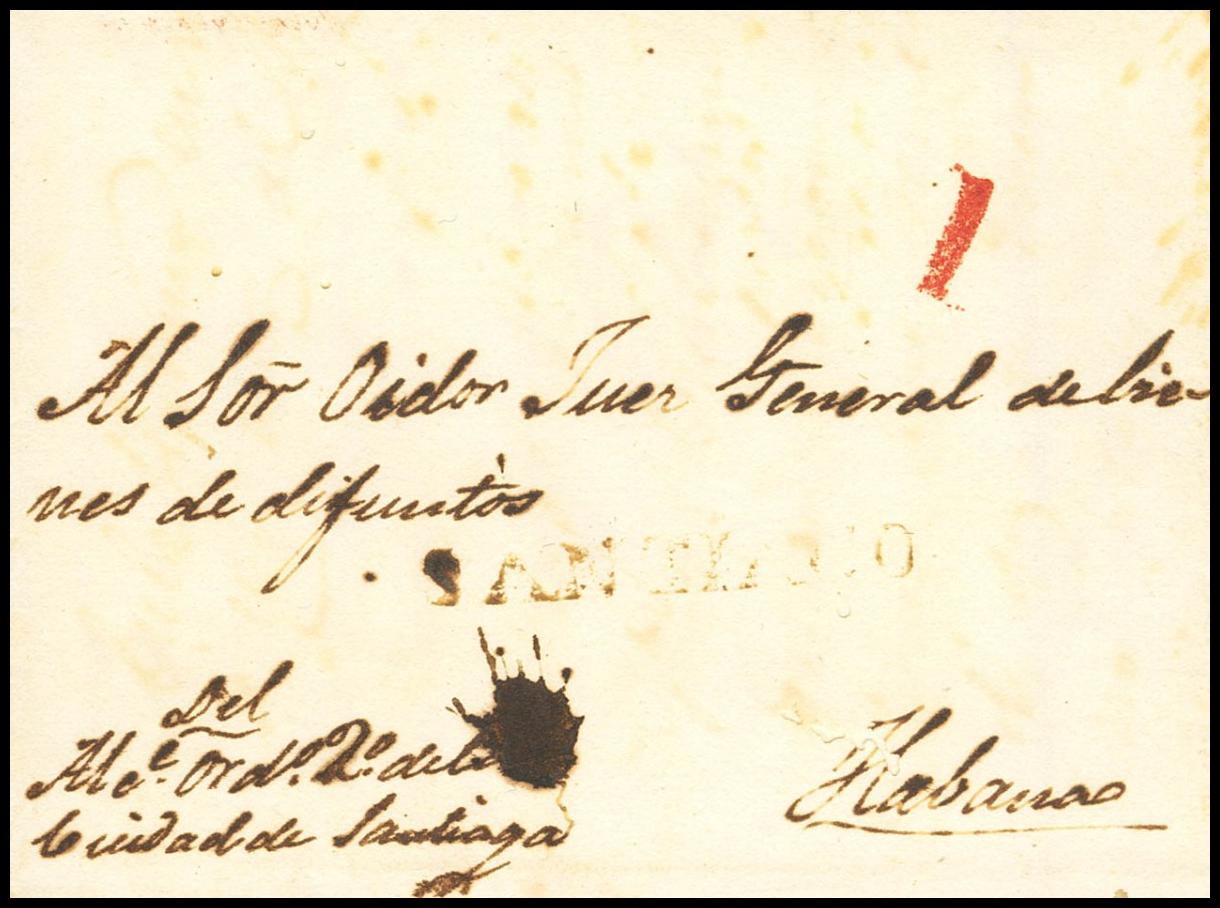 1
Al Sor̃ Oidor Juez General de bie-
nes de difuntos
Del
Alce. Ordo. 2o. de la
Ciudad de Santiago
Habana